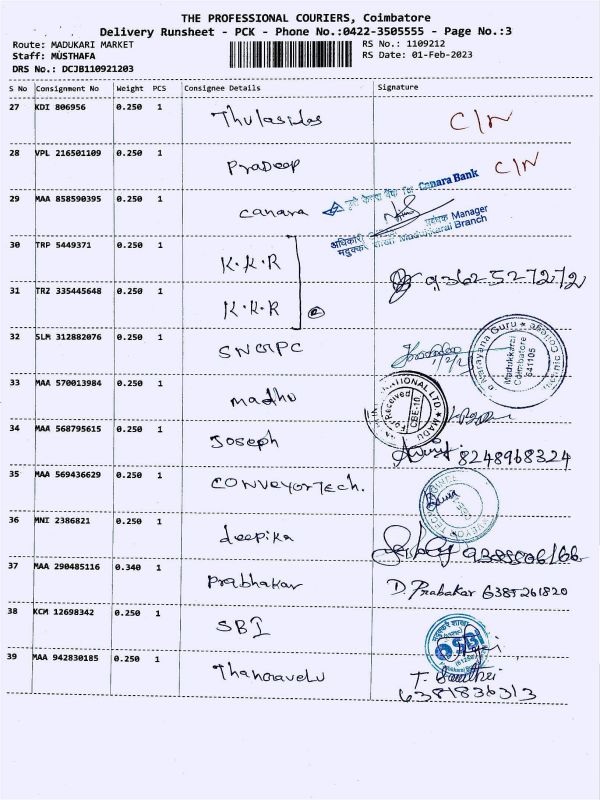 THE PROFESSIONAL COURIERS, Coimbatore
Delivery Runsheet - PCK - Phone No.:0422-3505555 - Page No.:3
Route: MADUKARI MARKET RS No.: 1109212
Staff: MUSTHAFA RS Date: 01-Feb-2023
DRS No.: DCJB110921203
S No Consignment No Weight PCS Consignee Details Signature
27 KDI 806956 0.250 1 Thulasidas C/N
28 VPL 216501109 0.250 1 Pradeep C/N
29 MAA 858590395 0.250 1 Canara
कृते केनरा बैंक For Canara Bank
अधिकारी प्रबंधक Manager
मदुक्करै शाखा Madukkarai Branch
30 TRP 5449371 0.250 1 K.K.R
31 TRZ 335445648 0.250 1 K.K.R 9362527272
32 SLM 312882076 0.250 1 SNGPC
Narayana Guru
College
Madukkarai
Coimbatore
641105
33 MAA 570013984 0.250 1 madhu
NATIONAL LTD.
MADU
Received
For
CBE-10
34 MAA 568795615 0.250 1 Joseph 8248968324
35 MAA 569436629 0.250 1 CONVEYORTECH.
36 MNI 2386821 0.250 1 deepika
37 MAA 290485116 0.340 1 Prabhakar D. Prabakar 6385261820
38 KCM 12698342 0.250 1 SBI
SBI
39 MAA 942830185 0.250 1 Thangavelu
6381836313